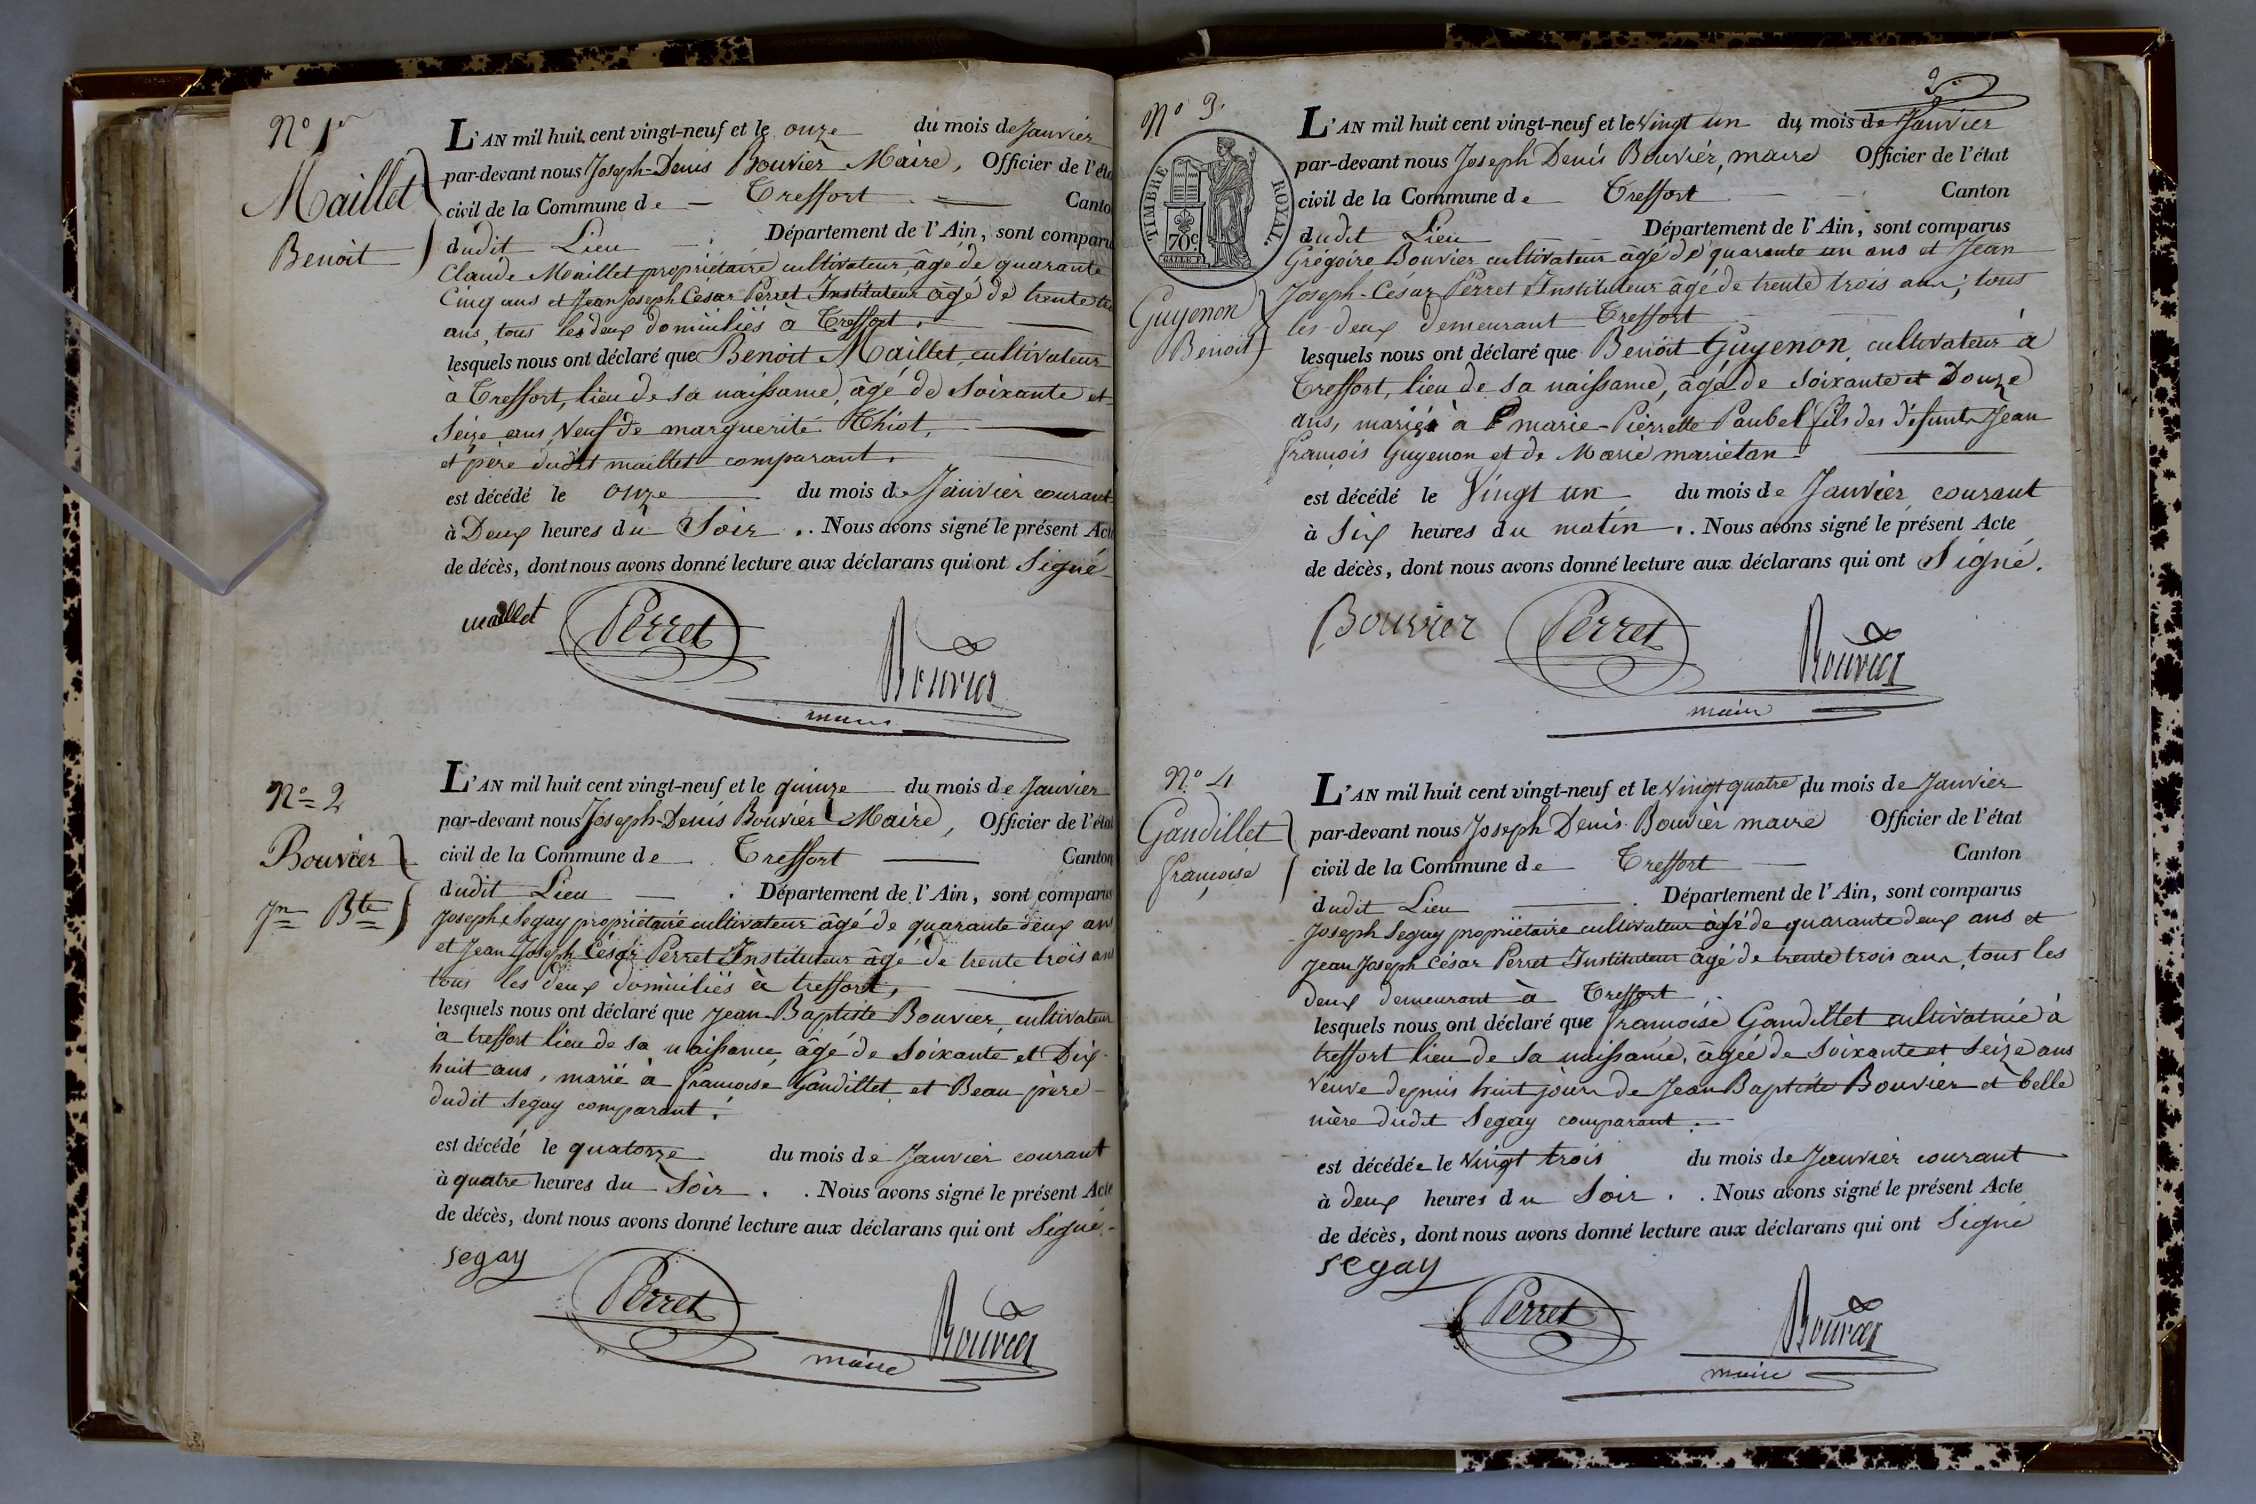 N° 1er
Maillet
Benoit
L'AN mil huit cent vingt-neuf et le onze du mois de Janvier
par-devant nous Joseph-Denis Bouvier Maire, Officier de l'éta
civil de la Commune de Treffort Canto
dudit Lieu Département de l'Ain, sont comparu
Claude Maillet propriétaire cultivateur, âgé de quarante
Cinq ans et Jean Joseph César Perret Instituteur âgé de trente
ans, tous les deux domiciliés à Treffort.
lesquels nous ont déclaré que Benoit Maillet, cultivateur
à Treffort, lieu de sa naissance, âgé de Soixante et
Seize ans, Veuf de marguerite Thiot,
et père dudit maillet comparant.
est décédé le onze du mois de Janvier courant
à Deux heures du Soir . . Nous avons signé le présent Acte
de décès, dont nous avons donné lecture aux déclarans qui ont Signé
maillet Perret Bouvier
maire
N° 2
Bouvier
Jn Bte
L'AN mil huit cent vingt-neuf et le quinze du mois de Janvier
par-devant nous Joseph-Denis Bouvier Maire, Officier de l'état
civil de la Commune de Treffort Canton
dudit Lieu Département de l'Ain, sont comparus
Joseph Segay propriétaire cultivateur âgé de quarante deux ans
et Jean Joseph César Perret Instituteur âgé de trente trois ans
tous les deux domiciliés à treffort,
lesquels nous ont déclaré que Jean-Baptiste Bouvier, cultivateur
à treffort lieu de sa naissance, âgé de Soixante et Dix-
huit ans, marié à françoise Gandillet et Beau père
dudit Segay comparant.
est décédé le quatorze du mois de Janvier courant
à quatre heures du Soir . . Nous avons signé le présent Acte
de décès, dont nous avons donné lecture aux déclarans qui ont Signé.
segay Perret Bouvier
maire
N° 3.
TIMBRE ROYAL.
70c.
Guyenon
Benoit
L'AN mil huit cent vingt-neuf et le Vingt un du mois de Janvier
par-devant nous Joseph Denis Bouvier, maire Officier de l'état
civil de la Commune de Treffort Canton
dudit Lieu Département de l'Ain, sont comparus
Grégoire Bouvier cultivateur âgé de quarante un ans et Jean
Joseph-César Perret Instituteur âgé de trente trois ans, tous
les deux demeurant Treffort
lesquels nous ont déclaré que Benoit Guyenon cultivateur à
Treffort, lieu de sa naissance, âgé de Soixante et Douze
ans, marié à marie-Pierrette Paubel fils des défunts Jean
françois Guyenon et de Marie marietan
est décédé le Vingt un du mois de Janvier courant
à Six heures du matin . . Nous avons signé le présent Acte
de décès, dont nous avons donné lecture aux déclarans qui ont Signé.
Bouvier Perret Bouvier
maire
N° 4
Gandillet
françoise
L'AN mil huit cent vingt-neuf et le Vingt quatre du mois de Janvier
par-devant nous Joseph Denis Bouvier maire Officier de l'état
civil de la Commune de Treffort Canton
dudit Lieu Département de l'Ain, sont comparus
Joseph Segay propriétaire cultivateur âgé de quarante deux ans et
Jean Joseph César Perret Instituteur âgé de trente trois ans, tous les
deux demeurant à Treffort
lesquels nous ont déclaré que françoise Gandillet cultivatrice à
treffort lieu de sa naissance, âgée de Soixante et Seize ans
Veuve depuis huit jours de Jean Baptiste Bouvier et belle
mère dudit Segay comparant.
est décédée le Vingt trois du mois de Janvier courant
à deux heures du Soir . . Nous avons signé le présent Acte
de décès, dont nous avons donné lecture aux déclarans qui ont Signé
segay Perret Bouvier
maire